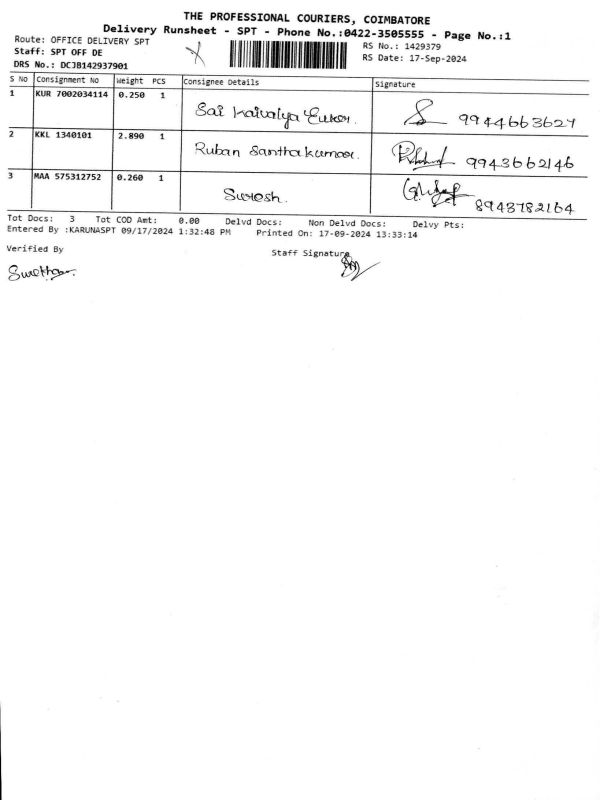 THE PROFESSIONAL COURIERS, COIMBATORE
Delivery Runsheet - SPT - Phone No.:0422-3505555 - Page No.:1
Route: OFFICE DELIVERY SPT RS No.: 1429379
Staff: SPT OFF DE RS Date: 17-Sep-2024
DRS No.: DCJB142937901
S No Consignment No Weight PCS Consignee Details Signature
1 KUR 7002034114 0.250 1 Sai Kaivalya 9944663627
2 KKL 1340101 2.890 1 Ruban Santhakumar. 9943662146
3 MAA 575312752 0.260 1 Suresh. 8943782164
Tot Docs: 3 Tot COD Amt: 0.00 Delvd Docs: Non Delvd Docs: Delvy Pts:
Entered By :KARUNASPT 09/17/2024 1:32:48 PM Printed On: 17-09-2024 13:33:14
Verified By Staff Signature